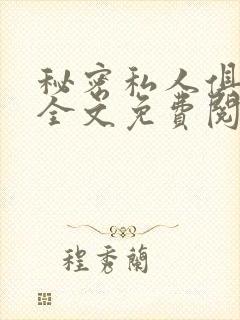 秘密私人俱
全文免費閱
程秀蘭